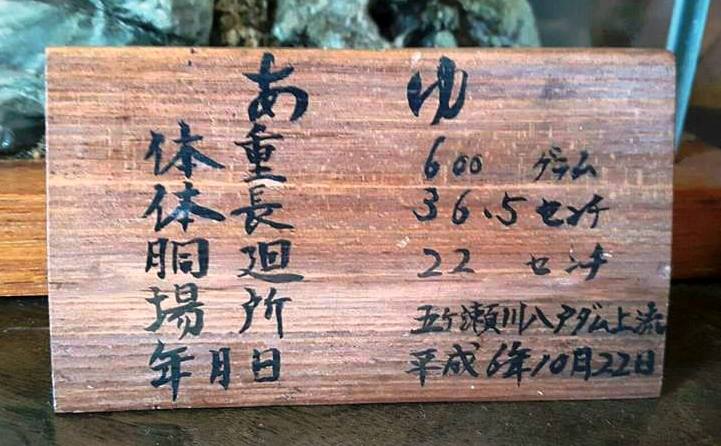 あゆ
体重 600 グラム
体長 36.5 センチ
胴廻 22 センチ
場所 五ヶ瀬川八戸ダム上流
年月日 平成6年10月22日